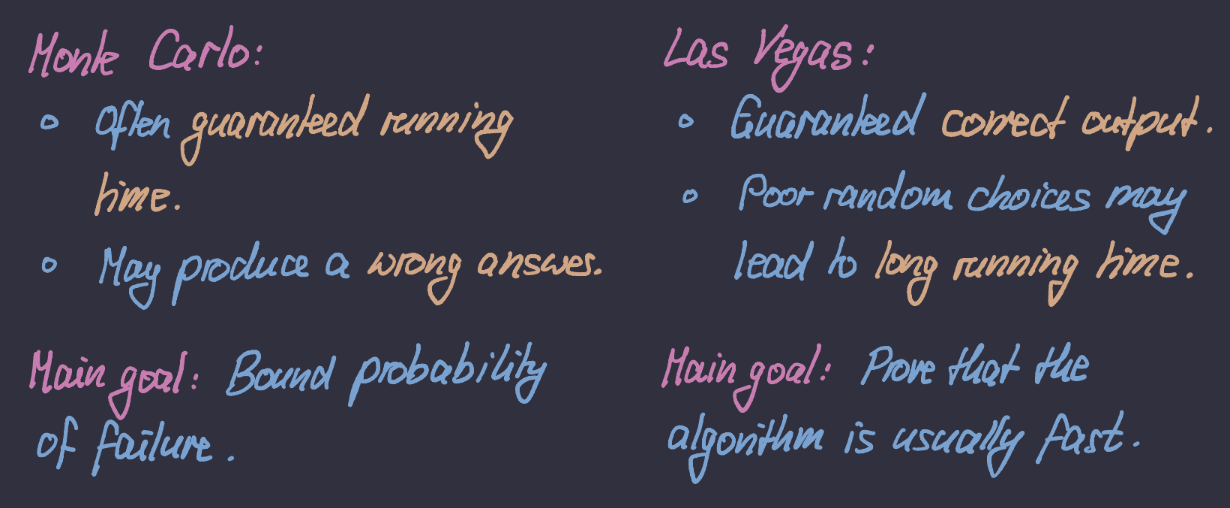 Monte Carlo:
◦ Often guaranteed running
time.
◦ May produce a wrong answer.
Main goal: Bound probability
of failure.
Las Vegas:
◦ Guaranteed correct output.
◦ Poor random choices may
lead to long running time.
Main goal: Prove that the
algorithm is usually fast.